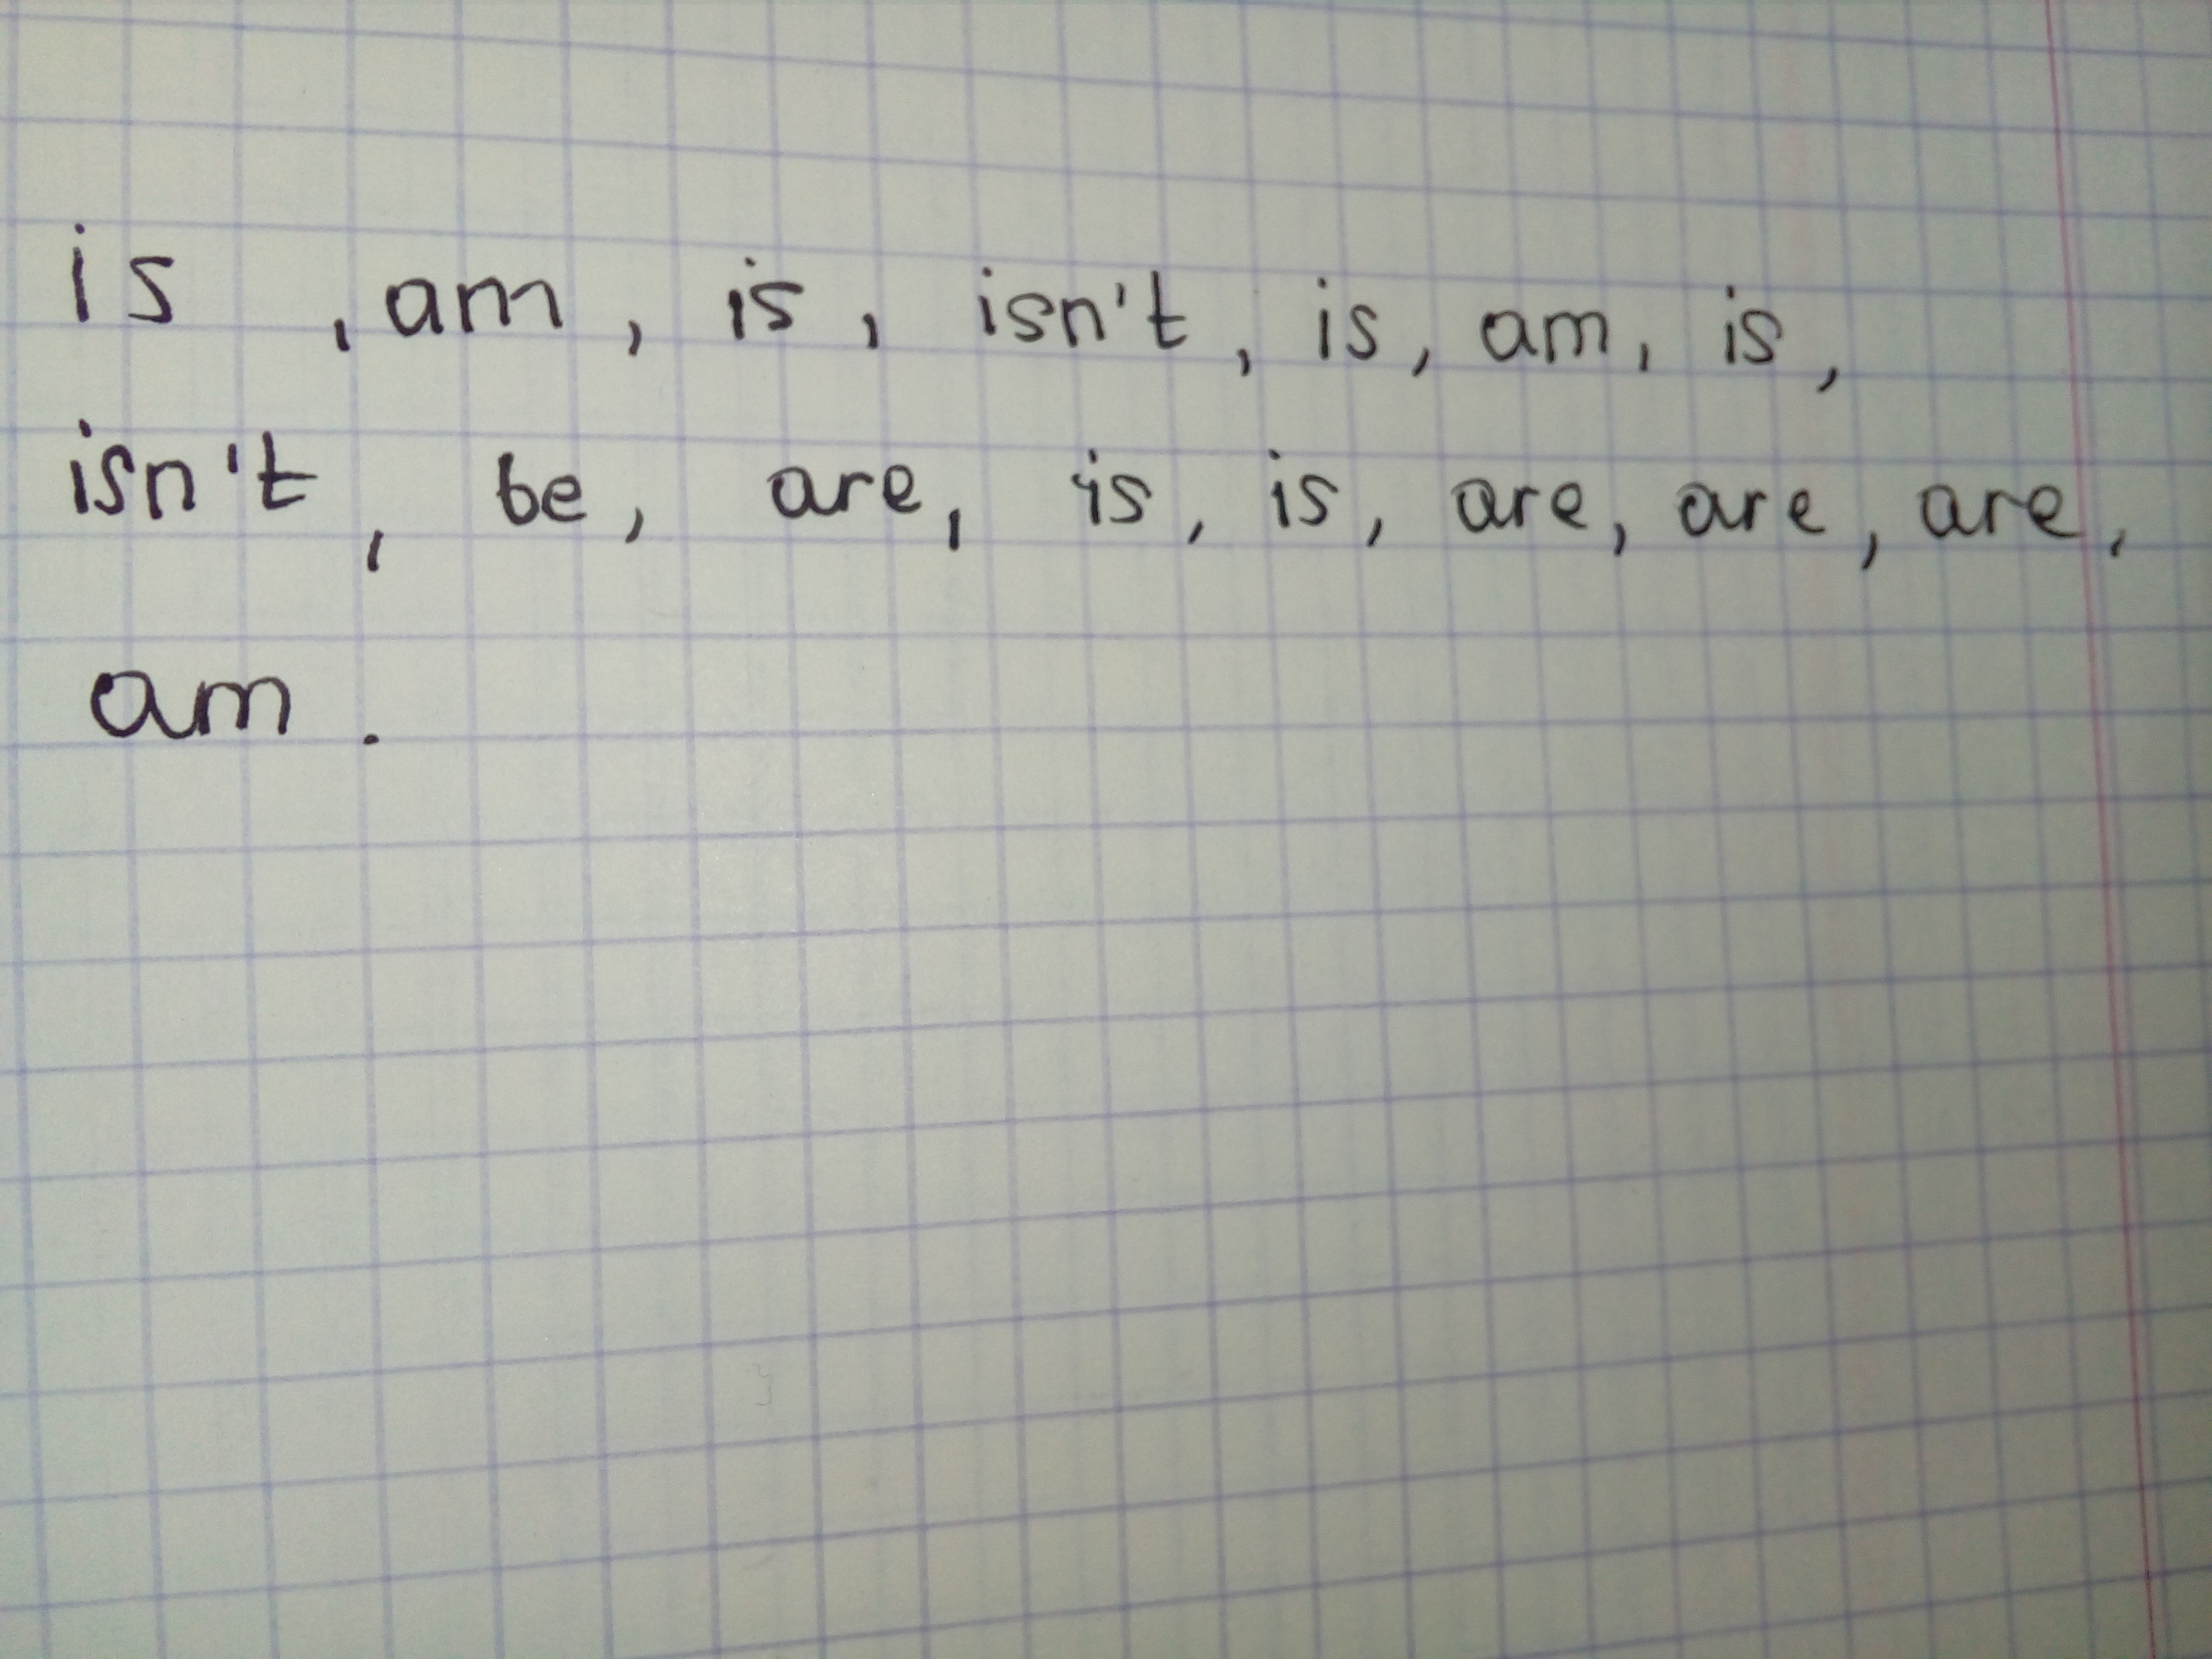 is , am, is, isn't, is, am, is,
isn't, be, are, is, is, are, are, are,
am.